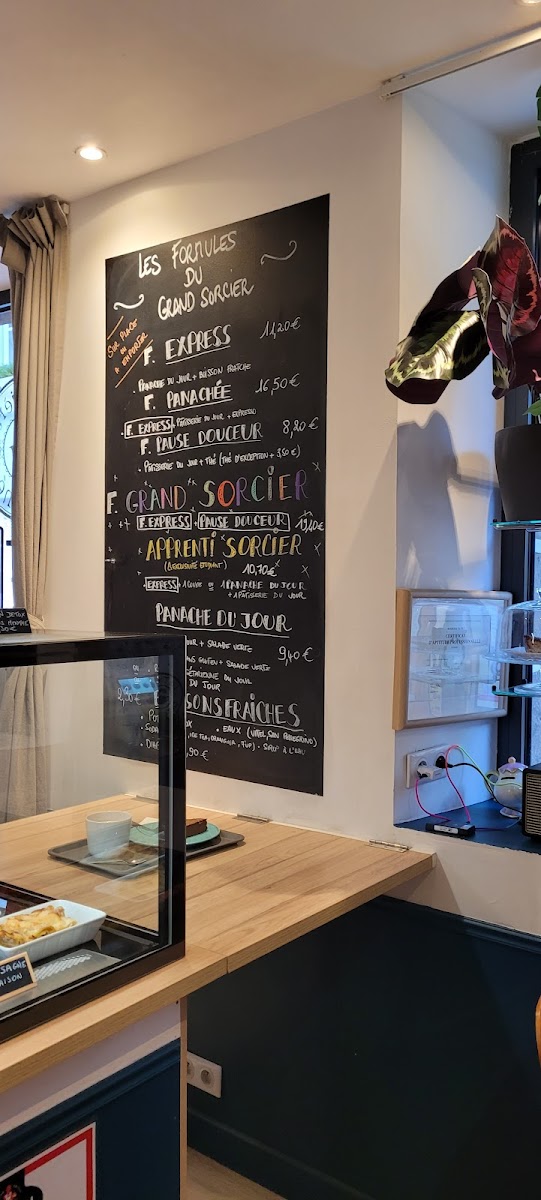 LES FORMULES
DU
GRAND SORCIER
SUR PLACE
OU
A EMPORTER
F. EXPRESS 11,20€
• PANACHE DU JOUR + BOISSON FRAÎCHE
F. PANACHÉE 16,50€
• F. EXPRESS + PÂTISSERIE DU JOUR + EXPRESSO
F. PAUSE DOUCEUR 8,20€
• PÂTISSERIE DU JOUR + THÉ (THÉ D'EXCEPTION + 3,50€)
F. GRAND SORCIER
F. EXPRESS + PAUSE DOUCEUR 19,40€
APPRENTI SORCIER
(EXCLUSIVITÉ ETUDIANT) 10,70€
EXPRESS = 1 PANACHE DU JOUR
+ 1 PÂTISSERIE DU JOUR
PANACHE DU JOUR
+ SALADE VERTE 9,40€
GLUTEN + SALADE VERTE
DU JOUR
DU JOUR
FRAÎCHES
EAUX (VITTEL, SAN PELLEGRINO)
ICE TEA, ORANGINA, 7UP) - SIROP À L'EAU
,90€
MAISON